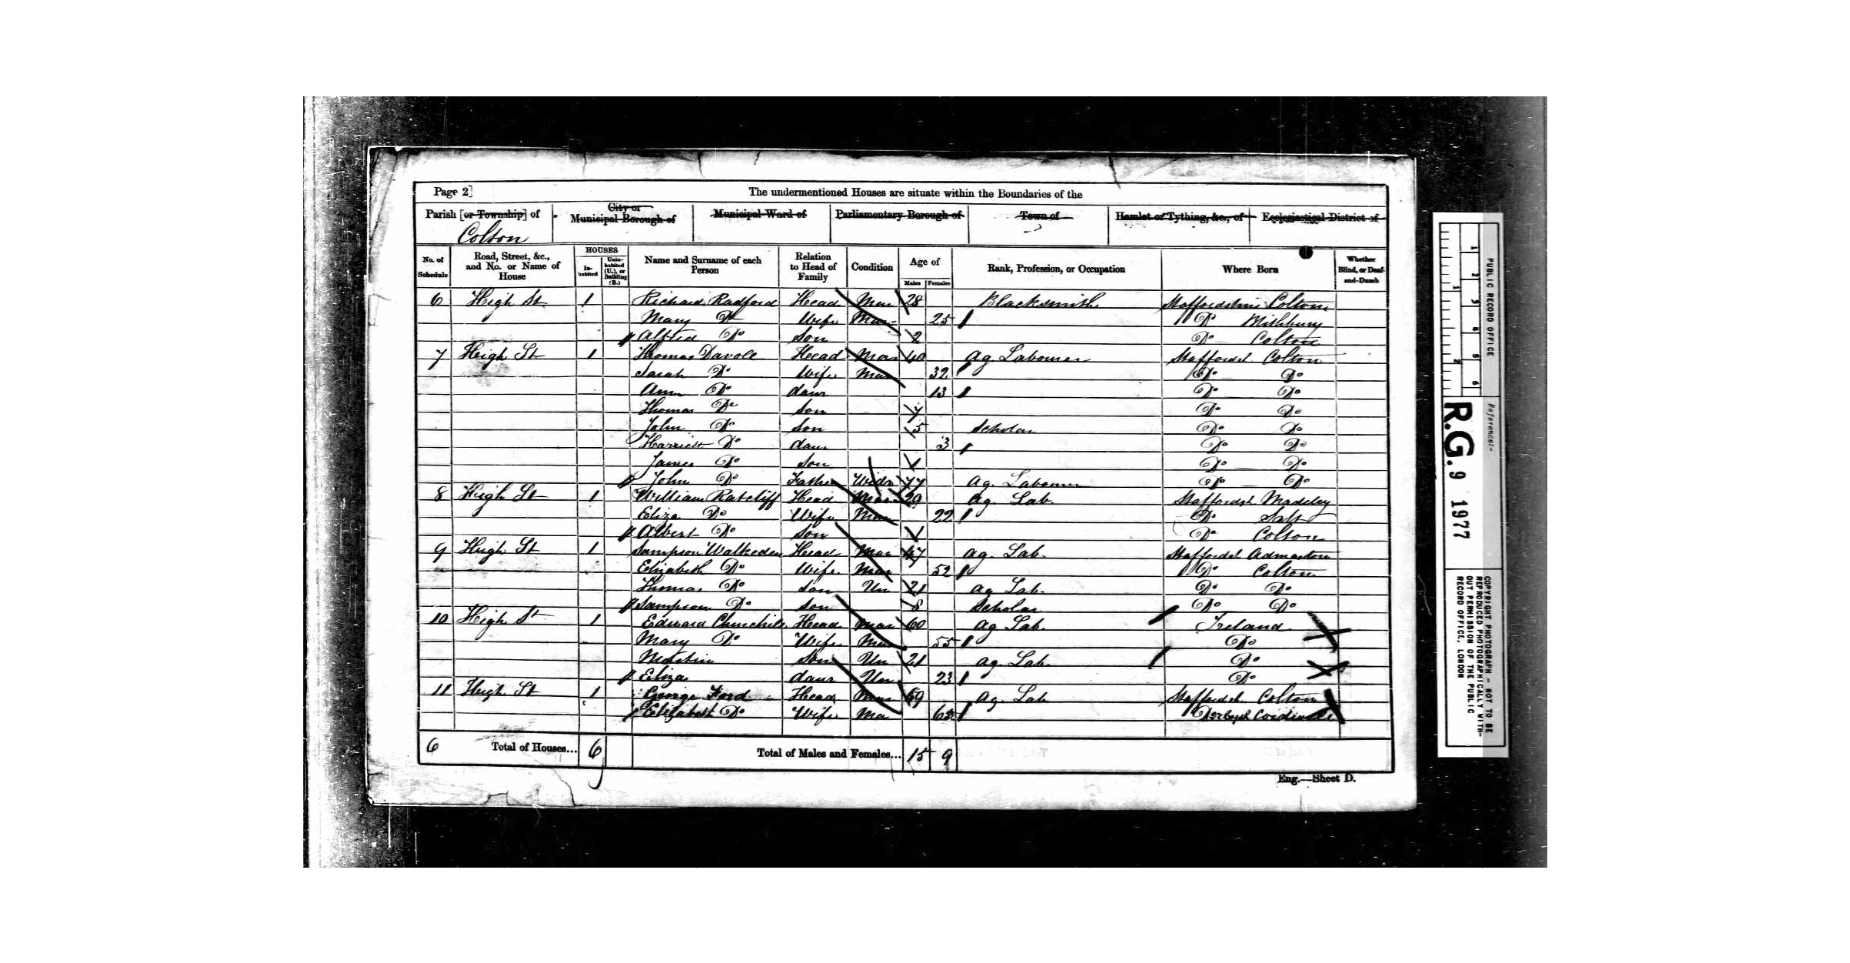 Page 2]
The undermentioned Houses are situate within the Boundaries of the
Parish [or Township] of
City or Municipal Borough of
Municipal Ward of
Parliamentary Borough of
Town of
Hamlet or Tything, &c., of
Ecclesiastical District of
Colton
No. of Schedule
Road, Street, &c., and No. or Name of House
HOUSES
Inhabited
Uninhabited (U.), or Building (B.)
Name and Surname of each Person
Relation to Head of Family
Condition
Age of
Males
Females
Rank, Profession, or Occupation
Where Born
Whether Blind, or Deaf-and-Dumb
6 High St 1 Richard Radford Head Mar 28 Blacksmith Staffordshire Colton
Mary Do Wife Mar 25 Do
Alfred Do Son 2 Do Colton
7 High St 1 Thomas Davole Head Mar 40 Ag Labourer Staffordsh Colton
Sarah Do Wife Mar 32 Do Do
Ann Do daur 13 Do Do
Thomas Do son 7 Do Do
John Do son 5 Scholar Do Do
Harriett Do daur 3 Do Do
James Do son Do Do
John Do Father Widr 77 Ag. Labourer Do Do
8 High St 1 William Ratcliff Head Mar 29 Ag. Lab. Staffordsh Madeley
Eliza Do Wife Mar 22 Do Salt
Albert Do son Do Colton
9 High St 1 Sampson Walkeden Head Mar 47 Ag. Lab. Staffordsh Admaston
Elizabeth Do Wife Mar 52 Do Colton
Thomas Do son Un 21 Ag Lab. Do Do
Sampson Do son 8 Scholar Do Do
10 High St 1 Edward Churchill Head Mar 60 Ag Lab. Ireland
Mary Do Wife Mar 55 Do
Martin Son Un 21 Ag Lab. Do
Eliza daur Un 23 Do
11 High St 1 George Ford Head Mar 69 Ag Lab Staffordsh Colton
Elizabeth Do Wife Ma Derbysh
6 Total of Houses... 6 Total of Males and Females... 15 9
Eng.—Sheet D.
PUBLIC RECORD OFFICE
Reference:-
R.G. 9 1977
COPYRIGHT PHOTOGRAPH - NOT TO BE REPRODUCED PHOTOGRAPHICALLY WITHOUT PERMISSION OF THE PUBLIC RECORD OFFICE, LONDON